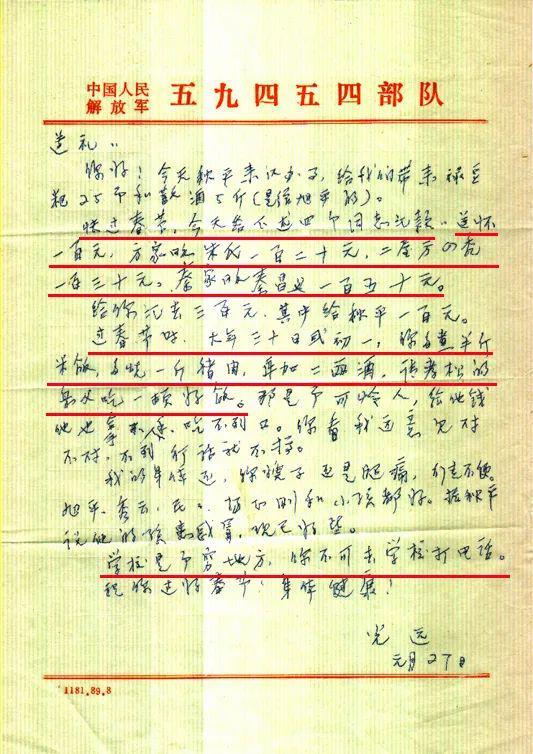 中国人民
解放军 五九四五四部队
送礼：
你好！今天秋平来汉办事，给我的带来绿豆
粑25斤和散酒5斤（是给旭平的）。
快过春节，今天给下述四个同志汇款：送怀
一百元，方家 朱 一百二十元，二屋方
一百三十元。蔡家 秦昌 一百五十元。
给你汇去三百元，其中给秋平一百元。
过春节时，大年三十日或初一，你多煮半斤
米饭，多烧一斤猪肉，再加二两酒，请孝松的
吃一顿好饭。那是个可怜人，给他钱
他也拿不住，吃不到口。你看我这意见对
不对，不到 行话就不搞。
我的身体还，你嫂子还是腿痛，行走不便。
旭平、秀云、 和小孩都好。据秋平
说他的孩患感冒，现已好些。
学校是个穷地方，你不可去学校打电话。
祝你过好春节！身体健康！
光远
元月27日
1181.89.8